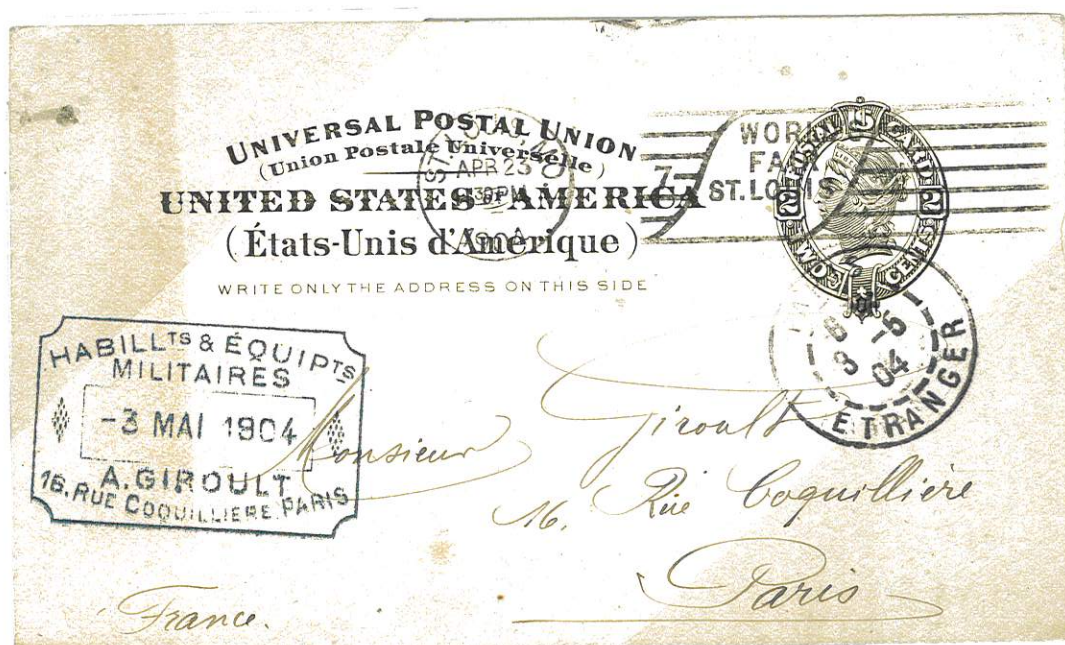 UNIVERSAL POSTAL UNION
(Union Postale Universelle)
UNITED STATES OF AMERICA
(États-Unis d'Amérique)
WRITE ONLY THE ADDRESS ON THIS SIDE
ST. LOUIS, MO
APR 23
30 PM
1904
7
WORLD
FAIR
ST. LOUIS
POSTAL CARD
TWO CENTS
2 2
ETRANGER
3 -5
04
HABILLTS & ÉQUIPTS
MILITAIRES
-3 MAI 1904
A. GIROULT
16, RUE COQUILLIERE. PARIS
Monsieur Giroult
16. Rue Coquillière
Paris
France.